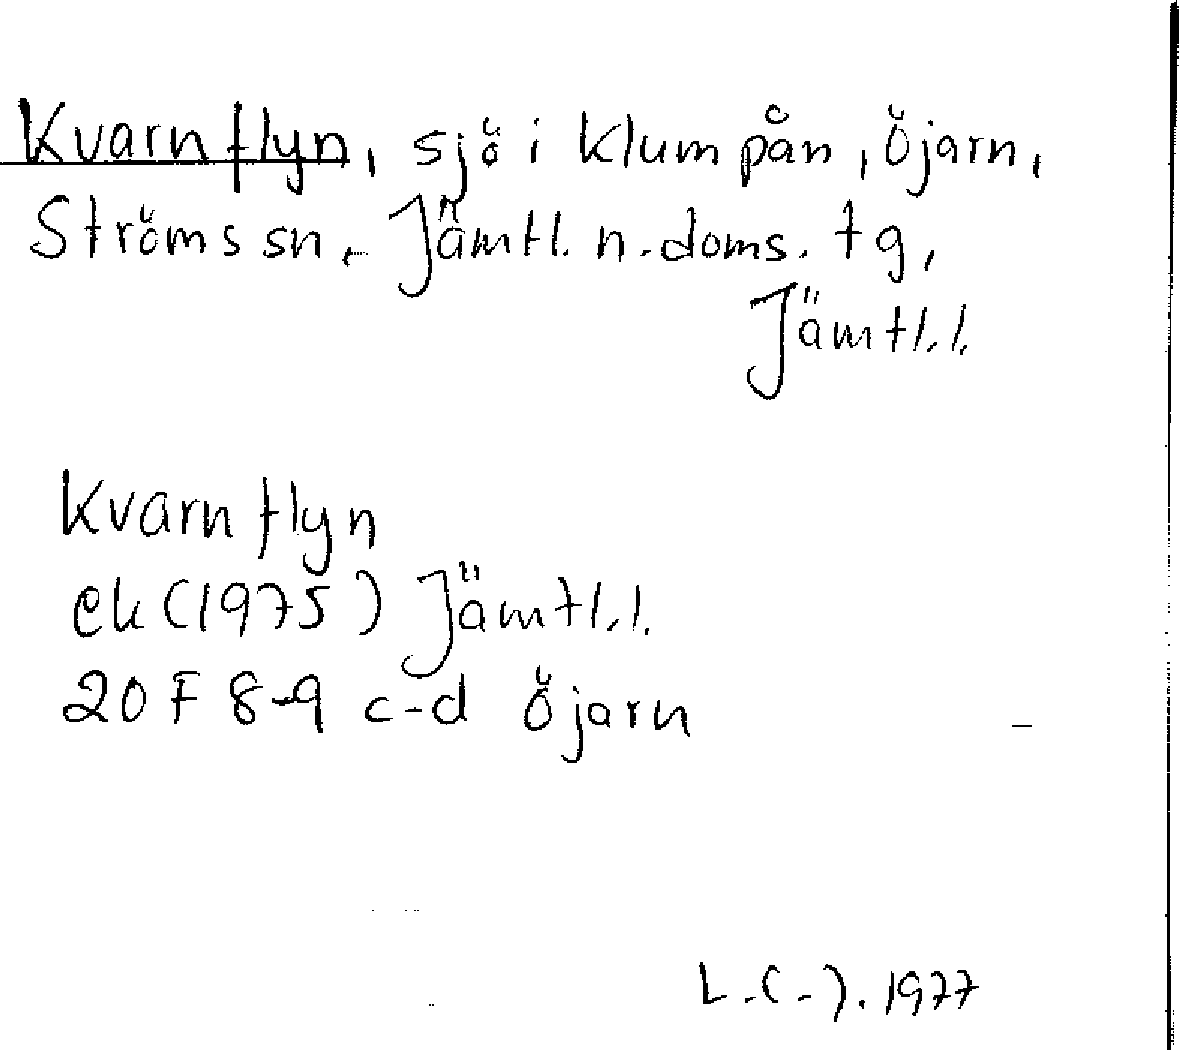 Kvarnflyn, sjö i Klumpån, Öjarn,
Ströms sn, Jämtl. n. doms. tg,
Jämtl. l.
Kvarnflyn
ek (1975) Jämtl. l.
20 F 8-9 c-d Öjarn
L.C-). 1977